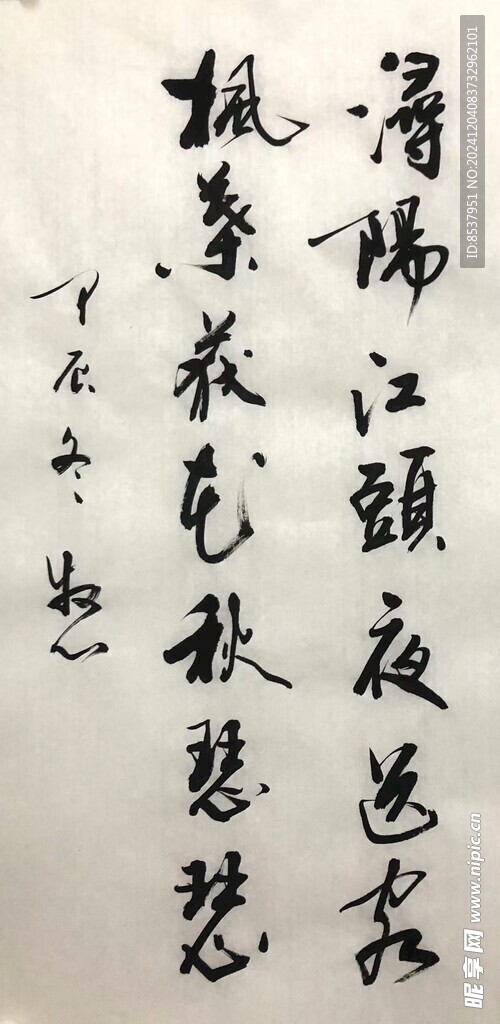 潯陽江頭夜送客
楓葉荻花秋瑟瑟
甲辰冬
ID:8537951 NO:20241204083732962101
昵享网 www.nipic.cn